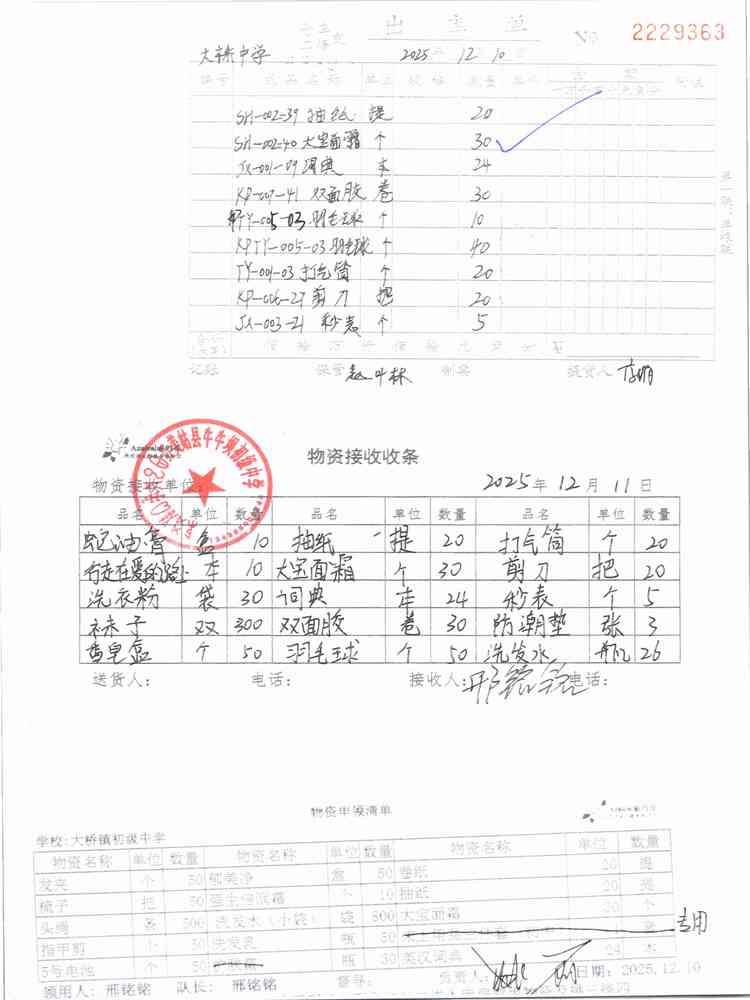 出 库 单
No 2229363
大桥中学 2025年 12 10
编号 产品名称 单位 规格 数量 单价 金额 附注
SH-002-39 抽纸 提 20
SH-002-40 大宝面霜 个 30
JX-001-09 词典 本 24
KP-007-41 双面胶 卷 30
TY-005-03 羽毛球 个 10
KPTY-005-03 羽毛球 个 40
TY-001-03 打气筒 个 20
KP-006-27 剪刀 把 20
JX-003-21 秒表 个 5
合计 佰 拾 万 仟 佰 拾 元 角 分 ¥
记账 保管 制单 提货人
物资接收收条
牛牛坝初级中学
物资接收单位: 2025年 12月 11日
品名 单位 数量 品名 单位 数量 品名 单位 数量
蛇油膏 盒 10 抽纸 提 20 打气筒 个 20
行走在爱的路上 本 10 大宝面霜 个 30 剪刀 把 20
洗衣粉 袋 30 词典 本 24 秒表 个 5
袜子 双 300 双面胶 卷 30 防潮垫 张 3
香皂盒 个 50 羽毛球 个 50 洗发水 瓶 26
送货人: 电话: 接收人: 邢铭铭 电话:
物资申领清单
学校:大桥镇初级中学
物资名称 单位 数量 物资名称 单位 数量 物资名称 单位 数量
发夹 个 50 郁美净 盒 50 卷纸 20 提
梳子 把 50 强生润肤霜 个 10 抽纸 20 提
头绳 条 500 洗发水(小袋) 袋 800 大宝面霜 30 个
指甲剪 个 50 洗发乳 瓶 30 专用
5号电池 个 50 护肤霜 瓶 30 英汉词典 24 本
领用人: 邢铭铭 队长: 邢铭铭 督导: 负责人: 日期: 2025.12.10